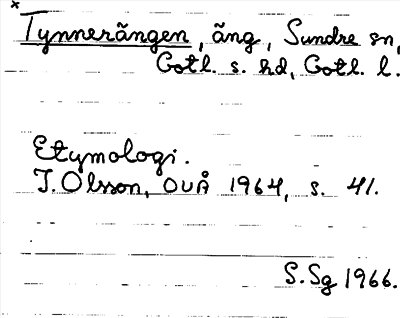 * Tynnerängen, äng, Sundre sn,
Gotl. s. hd, Gotl. l.
Etymologi.
I. Olsson, OUÅ 1964, s. 41.
S.Sg 1966.